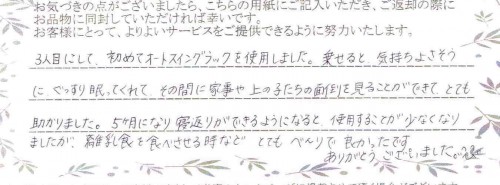 お気づきの点がございましたら、こちらの用紙にご記入いただき、ご返却の際に
お品物に同封していただければ幸いです。
お客様にとって、よりよいサービスをご提供できるように努力いたします。
3人目にして、初めてオートスイングラックを使用しました。乗せると、気持ちよさそう
に、ぐっすり眠ってくれて、その間に家事や上の子たちの面倒を見ることができて、とても
助かりました。5ヶ月になり寝返りができるようになると、使用することが少なくなり
ましたが、離乳食を食べさせる時など、とてもべんりで良かったです
ありがとうございました。